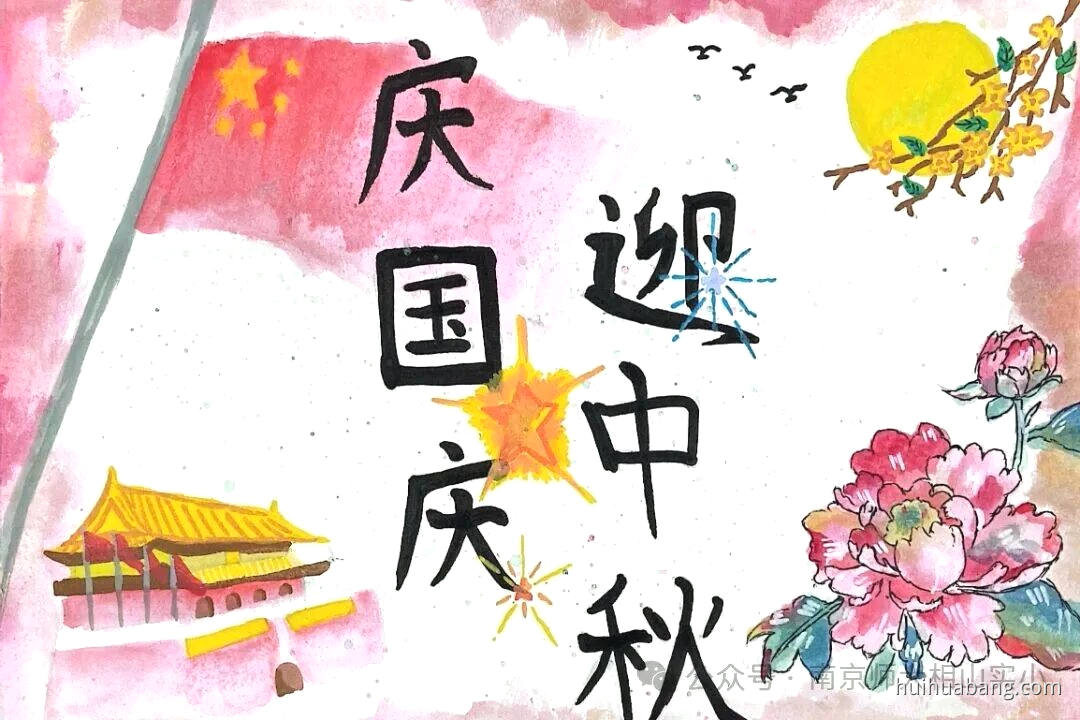 庆国庆
迎中秋
公众号·南京师大相山实小
huihuabang.com